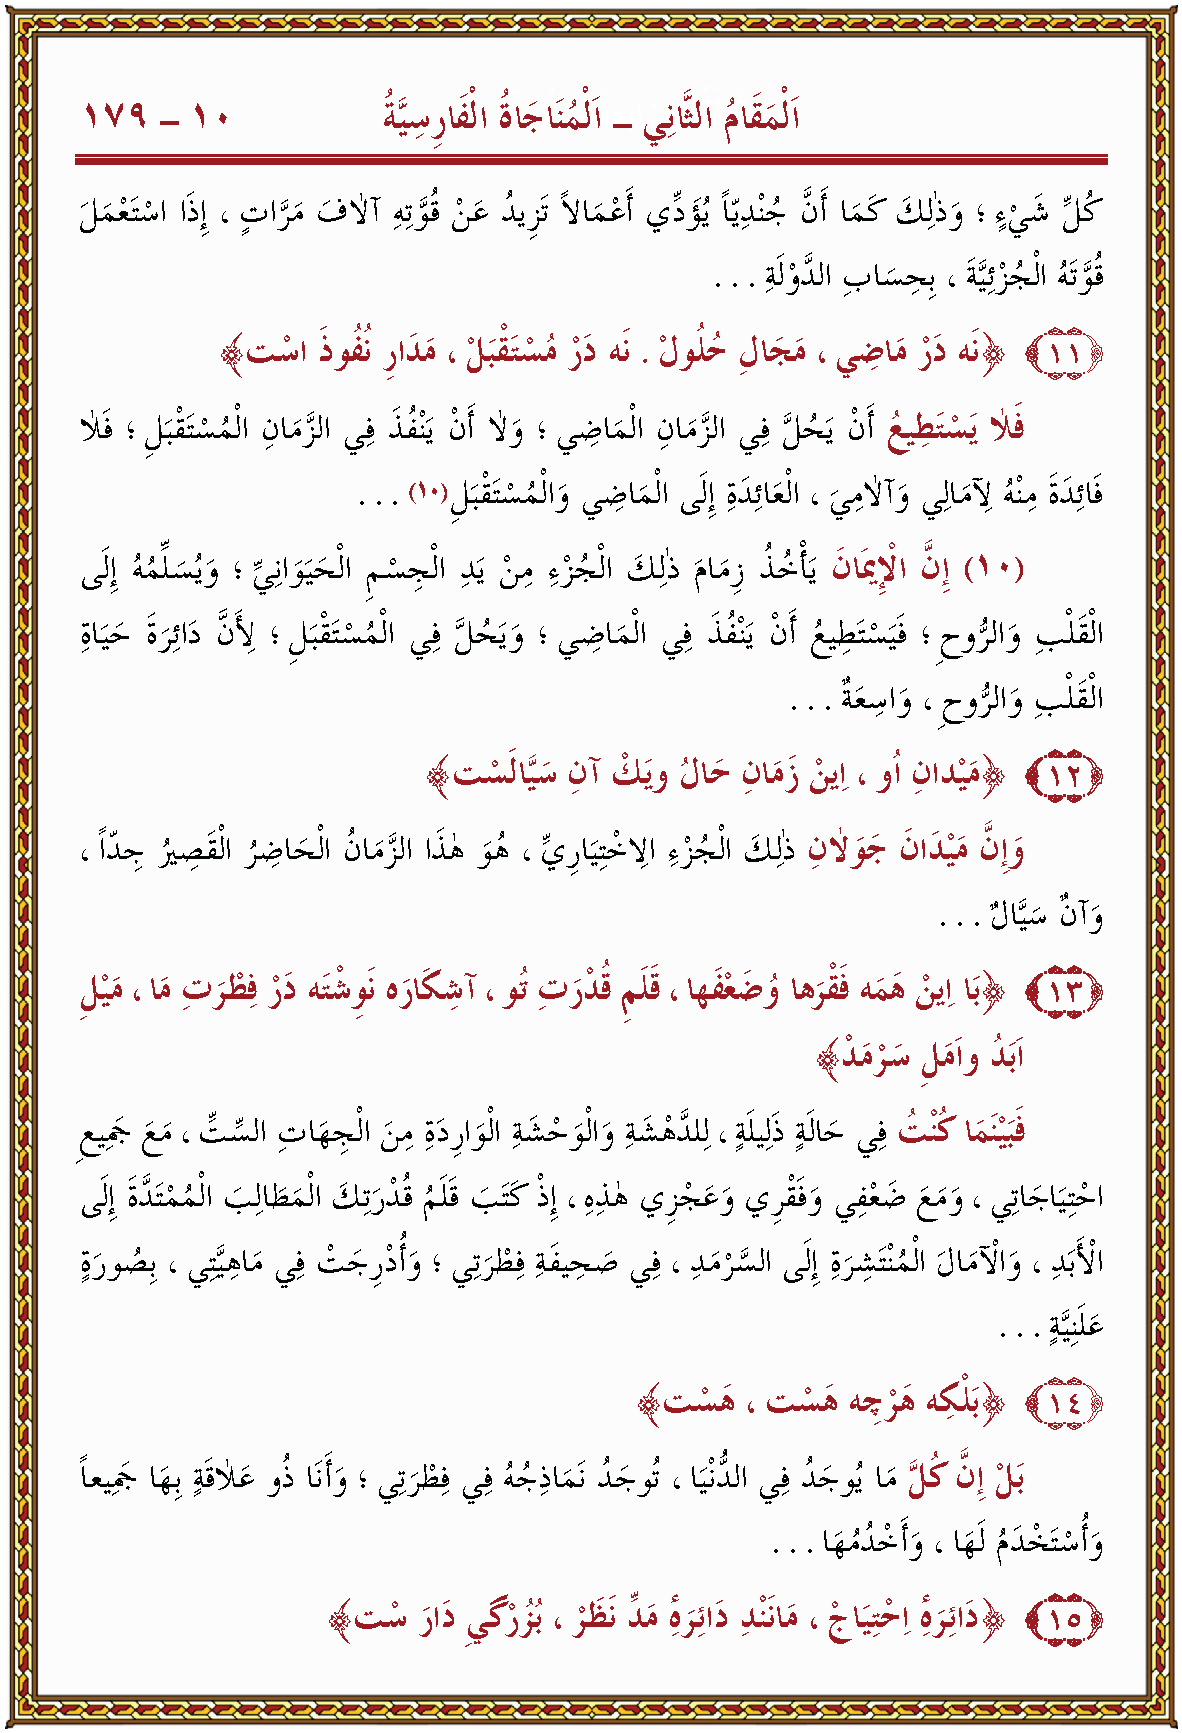 اَلْمَقَامُ الثَّانِي ــ اَلْمُنَاجَاةُ الْفَارِسِيَّةُ ١٠ ــ ١٧٩
كُلِّ شَيْءٍ ؛ وَذٰلِكَ كَمَا أَنَّ جُنْدِيّاً يُؤَدِّي أَعْمَالاً تَزِيدُ عَنْ قُوَّتِهِ آلاٰفَ مَرَّاتٍ ، إِذَا اسْتَعْمَلَ
قُوَّتَهُ الْجُزْئِيَّةَ ، بِحِسَابِ الدَّوْلَةِ . . .
﴿١١﴾ ﴿نَه دَرْ مَاضِي ، مَجَالِ حُلُولْ . نَه دَرْ مُسْتَقْبَلْ ، مَدَارِ نُفُوذَ اسْت﴾
فَلاٰ يَسْتَطِيعُ أَنْ يَحُلَّ فِي الزَّمَانِ الْمَاضِي ؛ وَلاٰ أَنْ يَنْفُذَ فِي الزَّمَانِ الْمُسْتَقْبَلِ ؛ فَلاٰ
فَائِدَةَ مِنْهُ لِآمَالِي وَآلاٰمِيَ ، الْعَائِدَةِ إِلَى الْمَاضِي وَالْمُسْتَقْبَلِ(١٠) . . .
(١٠) إِنَّ الْإِيمَانَ يَأْخُذُ زِمَامَ ذٰلِكَ الْجُزْءِ مِنْ يَدِ الْجِسْمِ الْحَيَوَانِيِّ ؛ وَيُسَلِّمُهُ إِلَى
الْقَلْبِ وَالرُّوحِ ؛ فَيَسْتَطِيعُ أَنْ يَنْفُذَ فِي الْمَاضِي ؛ وَيَحُلَّ فِي الْمُسْتَقْبَلِ ؛ لِأَنَّ دَائِرَةَ حَيَاةِ
الْقَلْبِ وَالرُّوحِ ، وَاسِعَةٌ . . .
﴿١٢﴾ ﴿مَيْدَانِ اُو ، اِينْ زَمَانِ حَالُ ويَكْ آنِ سَيَّالَسْت﴾
وَإِنَّ مَيْدَانَ جَوَلاٰنِ ذٰلِكَ الْجُزْءِ الاِخْتِيَارِيِّ ، هُوَ هٰذَا الزَّمَانُ الْحَاضِرُ الْقَصِيرُ جِدّاً ،
وَآنٌ سَيَّالٌ . . .
﴿١٣﴾ ﴿بَا اِينْ هَمَه فَقْرهَا وُضَعْفهَا ، قَلَمِ قُدْرَتِ تُو ، آشِكَارَه نَوِشْتَه دَرْ فِطْرَتِ مَا ، مَيْلِ
اَبَدُ واَمَلِ سَرْمَدْ﴾
فَبَيْنَمَا كُنْتُ فِي حَالَةٍ ذَلِيلَةٍ ، لِلدَّهْشَةِ وَالْوَحْشَةِ الْوَارِدَةِ مِنَ الْجِهَاتِ السِّتِّ ، مَعَ جَمِيعِ
احْتِيَاجَاتِي ، وَمَعَ ضَعْفِي وَفَقْرِي وَعَجْزِي هٰذِهِ ، إِذْ كَتَبَ قَلَمُ قُدْرَتِكَ الْمَطَالِبَ الْمُمْتَدَّةَ إِلَى
الْأَبَدِ ، وَالْآمَالَ الْمُنْتَشِرَةَ إِلَى السَّرْمَدِ ، فِي صَحِيفَةِ فِطْرَتِي ؛ وَأُدْرِجَتْ فِي مَاهِيَّتِي ، بِصُورَةٍ
عَلَنِيَّةٍ . . .
﴿١٤﴾ ﴿بَلْكِه هَرْچِه هَسْت ، هَسْت﴾
بَلْ إِنَّ كُلَّ مَا يُوجَدُ فِي الدُّنْيَا ، تُوجَدُ نَمَاذِجُهُ فِي فِطْرَتِي ؛ وَأَنَا ذُو عَلاٰقَةٍ بِهَا جَمِيعاً
وَأُسْتَخْدَمُ لَهَا ، وَأَخْدُمُهَا . . .
﴿١٥﴾ ﴿دَائِرَهٔ اِحْتِيَاجْ ، مَانَنْدِ دَائِرَهٔ مَدِّ نَظَرْ ، بُزُرْگِي دَارَ سْت﴾